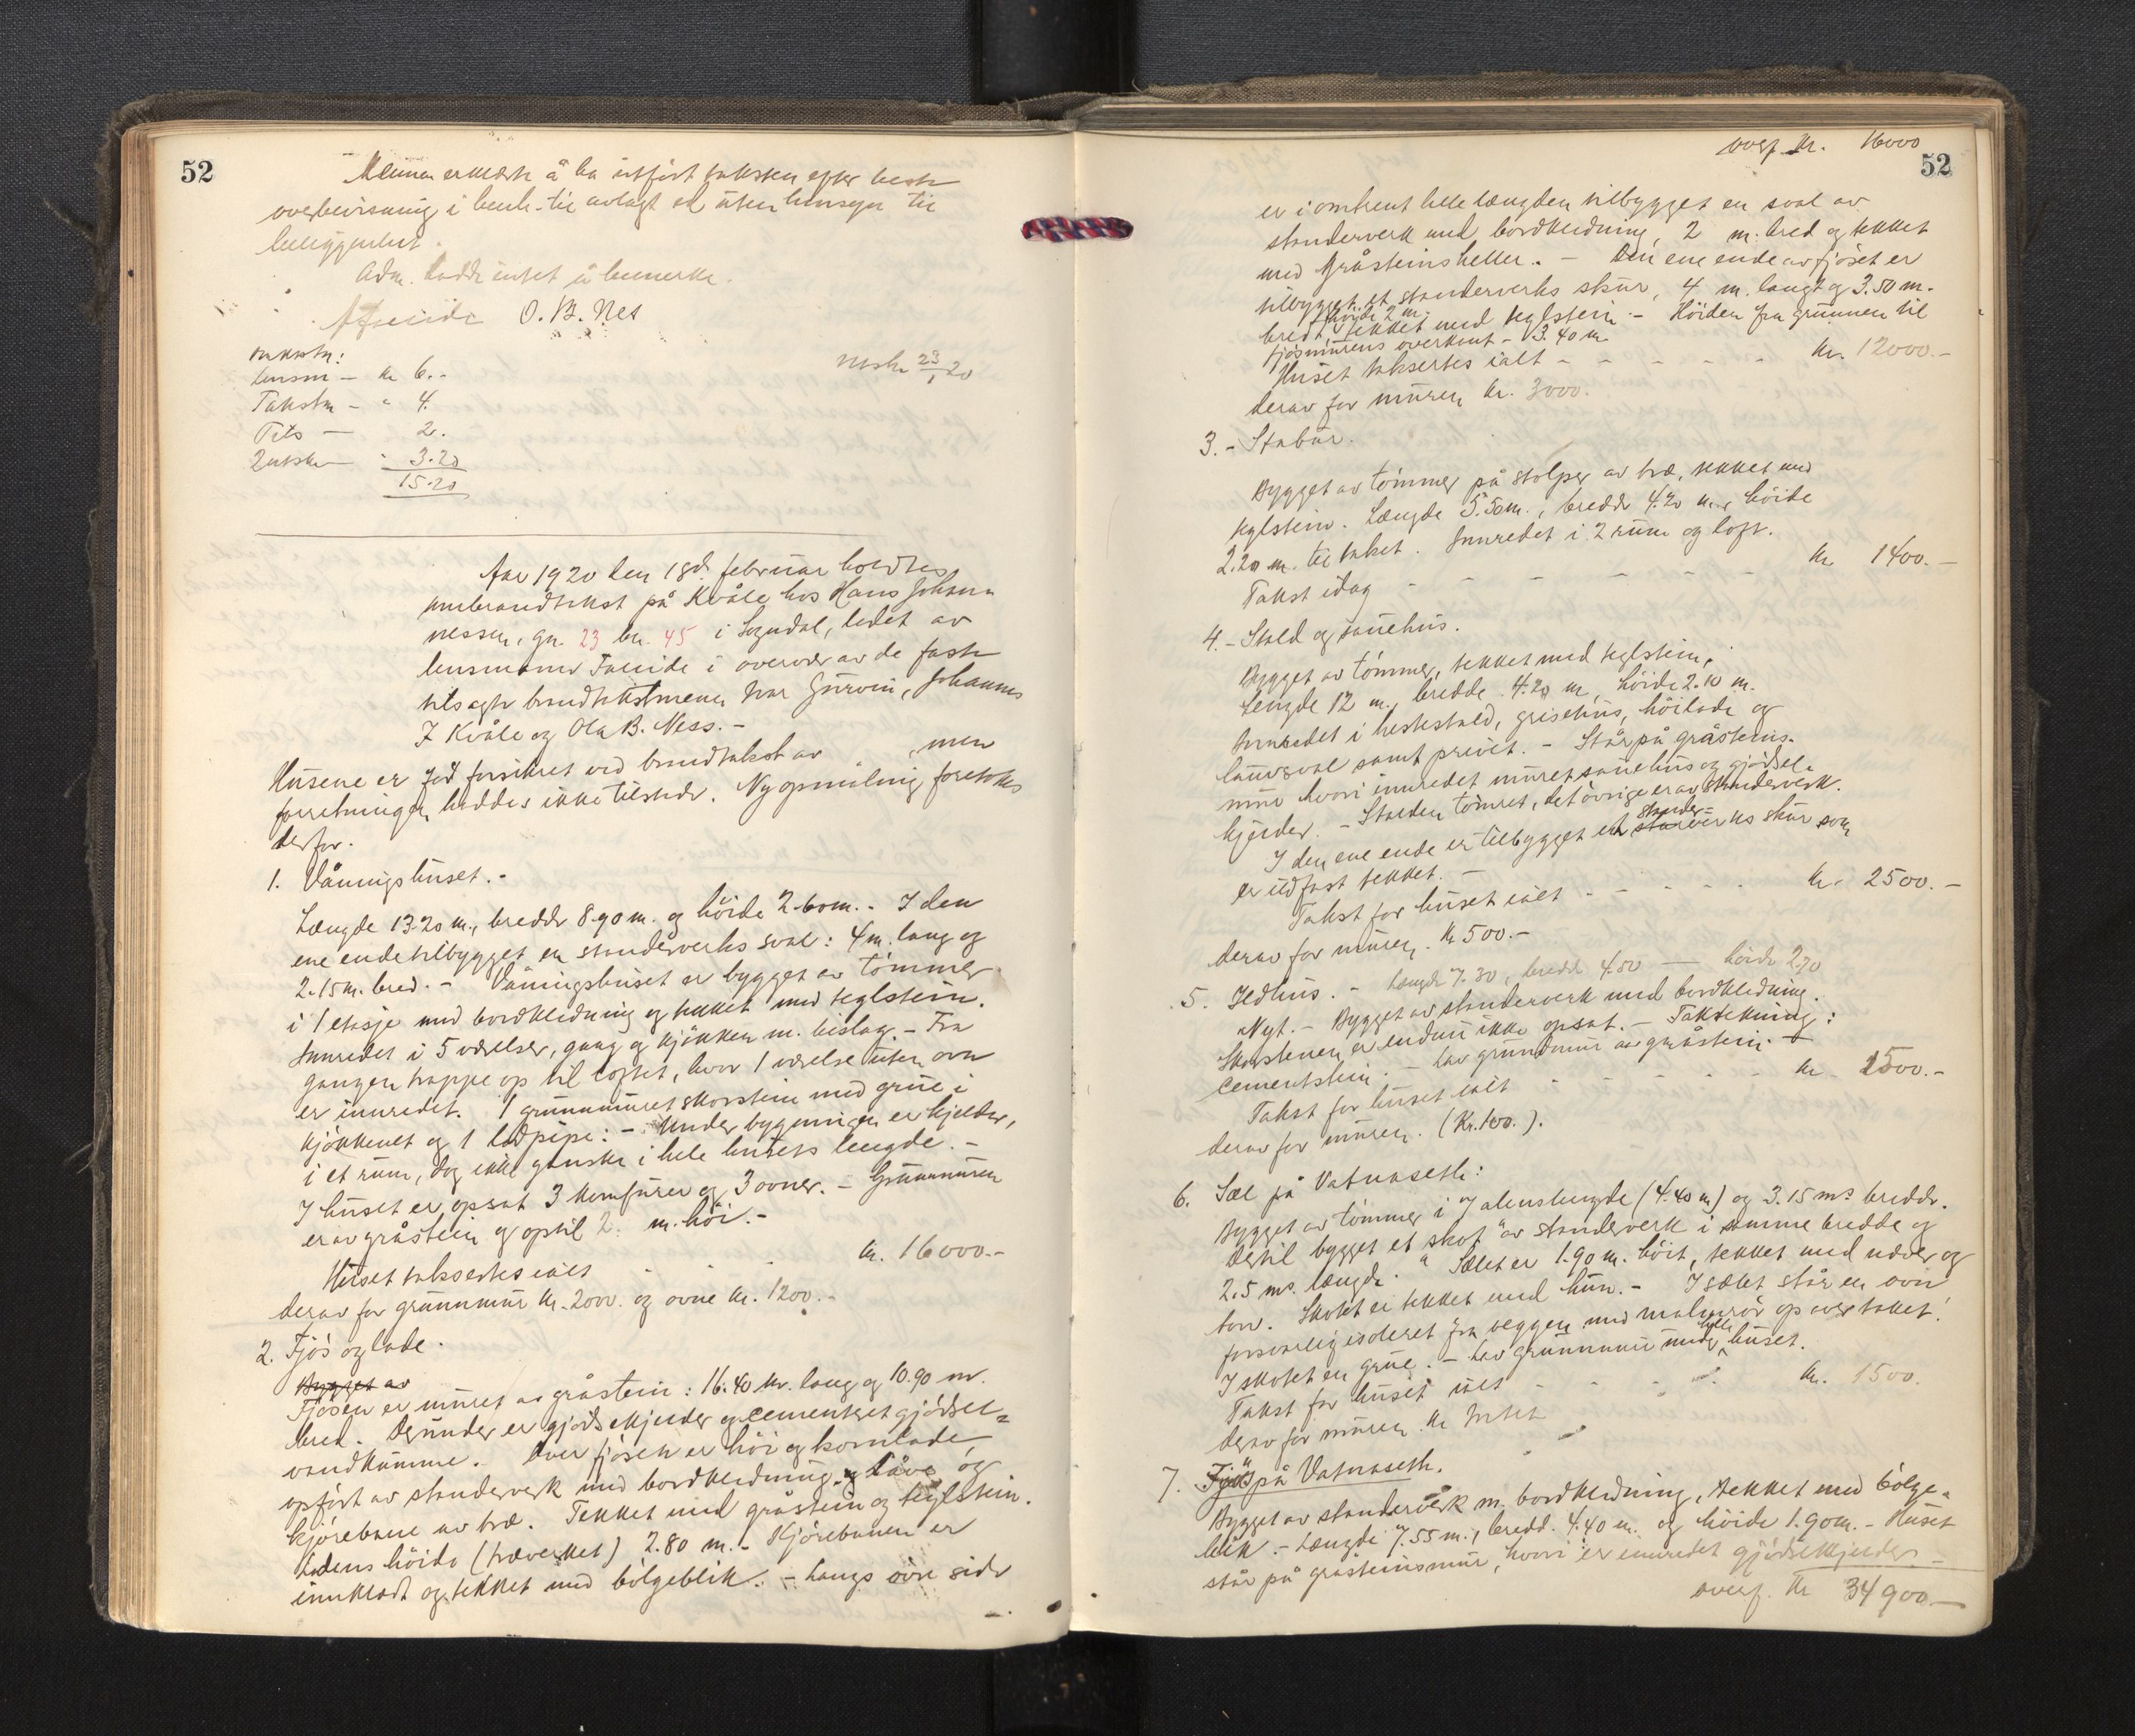 52
Mennen erklærte å ha utført taksten efter beste
overbevisning i henh. til avlagt ed uten hensyn til
beliggenhet.
Adm. hadde intet å bemerke.
O. B. Nes
Takster:
Lensm – kr 6.-
Takstm – " 4.
2.
3.20
15.20
23/1 20
Aar 1920 den 18d. februar holdtes
ombrandtakst på Kvåle hos Hans Johan-
nessen, gn. 23 bn. 45 i Sogndal, ledet av
lensmann Faleide i overvær av de faste
tilsagte brandtakstmenn Ivar Gurvin, Johannes
J Kvåle og Ola B. Ness. -
Husene er før forsikret ved brandtakst av , men
forretningen haddes ikke tilstede. Ny opmåling foretokes
derfor.
1. Våningshuset. -
Længde 13.20 m., bredde 8.90 m. og høide 2.60 m. - I den
ene ende tilbygget en standerverks sval: 4 m. lang og
2.15 m. bred. - Våningshuset er bygget av tømmer
i 1 etasje med bordklædning og tekket med teglstein.
Innredet i 5 værelser, gang og kjøkken m. bislag. - Fra
gangen trappe op til loftet, hvor 1 værelse uten ovn
er innredet. 1 grunnmuret skorstein med grue i
kjøkkenet og 1 lødpipe: - Under bygningen er kjelder,
i et rum, dog ikke ganske i hele husets lengde. -
I huset er opsat 3 komfurer og 3 ovner. - Grunnmuren
er av gråstein og optil 2. m. høi. -
Huset takseres ialt - - - kr. 16000.-
derav for grunnmur kr. 2000. og ovne kr. 1200.-
2. Fjøs og lade.
Bygget av
Fjøsen er muret av gråstein: 16.40 m. lang og 10.90 m.
bred. Derunder er gjødselkjelder og cementeret gjødsel-
vandkumme. Over fjøsen er høi og kornlade,
opført av standerverk med bordklædning og låve og
kjørebane av træ. Tekket med gråstein og teglstein.
Ladens høide (træverket) 2.80 m. - Kjørebanen er
innklædt og tekket med bølgeblik. - Langs øvre side
overf kr. 16000
52
er i omtrent hele længden tilbygget en sval av
standerverk med bordklædning, 2 m. bred og tekket
med gråsteinsheller. - Den ene ende av fjøset er
tilbygget et standerverks skur, 4 m. langt og 3.50 m.
høide 2 m.
bredt, tekket med teglstein. - Høiden fra grunnen til
fjøsmurens overkant - 3.40 m.
Huset takseres ialt - - - - - kr. 12000.-
derav for muren kr. 3000.
3. - Stabur.
Bygget av tømmer på stolper av træ, tekket med
teglstein. Længde 5.50 m., bredde 4.20 m., høide
2.20 m. til taket. Innredet i 2 rum og loft.
Takst idag - - - - - - kr 1400.-
4. - Stald og sauehus.
Bygget av tømmer, tekket med teglstein,
Lengde 12 m., bredde 4.20 m, høide 2.10 m.
Innredet i hestestald, grisehus, høilade og
lauvsval samt privet. - Står på gråsteins-
mur hvori innredet muret sauehus og gjødsel-
kjelder. - Stalden tømret, det øvrige er av standerverk.
stander-
I den ene ende er tilbygget et starverks skur som
er ildfast tekket. -
Takst for huset ialt - - - - - kr. 2500.-
derav for muren. kr 500.-
5. Ildhus. - Længde 7.30, bredde 4.50 — høide 2.70
Nyt. - Bygget av standerverk med bordklædning.
Skorstenen er endnu ikke opsat. - Taktekning:
cementstein. - Lav grunnmur av gråstein. -
Takst for huset ialt - - - - - kr 1500.-
derav for muren. (Kr. 100.).
6. Sæl på Vatnasete:
Bygget av tømmer i 7 alens lengde (4.40 m) og 3.15 ms bredde.
Dertil bygget et "skot" av standerverk i samme bredde og
2.5 ms. længde. Sælet er 1.90 m. høit, tekket med næver og
torv. Skotet er tekket med hun. - I sælet står en ovn
forsvarlig isoleret fra veggen med malmrør op over taket.
hele
I skotet en grue. - Lav grunnmur under huset.
Takst for huset ialt - - - - kr. 1500.
derav for muren kr Intet
7. Fjøs på Vatnasete.
Bygget av standerverk m. bordklædning, tekket med bølge-
blik. - Længde 7.55 m., bredd. 4.40 m. og høide 1.90 m. - Huset
står på gråsteinsmur, hvori er innredet gjødselkjelder
overf. Kr 34900.-